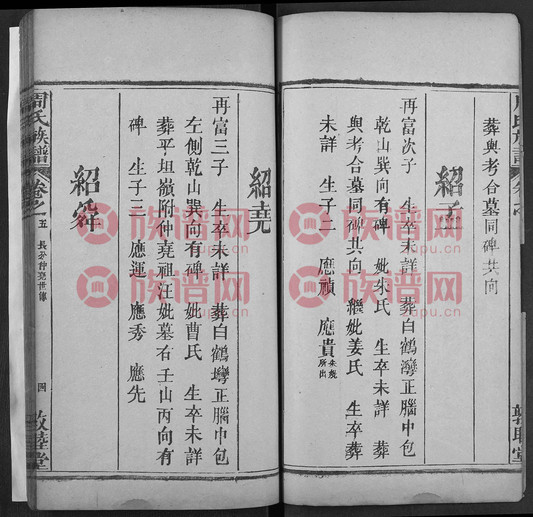 葬與考合墓同碑共向
紹孟
再富次子 生卒未詳 葬白鶴灣正腦中包
乾山巽向有碑 妣朱氏 生卒未詳 葬
與考合墓同碑共向 繼妣姜氏 生卒葬
未詳 生子二 應禎 應貴朱氏所出
紹堯
再富三子 生卒未詳 葬白鶴灣正腦中包
左側乾山巽向有碑 妣曹氏 生卒未詳
葬平坦嶺附仲堯祖江妣墓右壬山丙向有
碑 生子三 應運 應秀 應先
紹舜
周氏族譜 卷之五 長分仲堯世傳 四 敦睦堂
族谱网